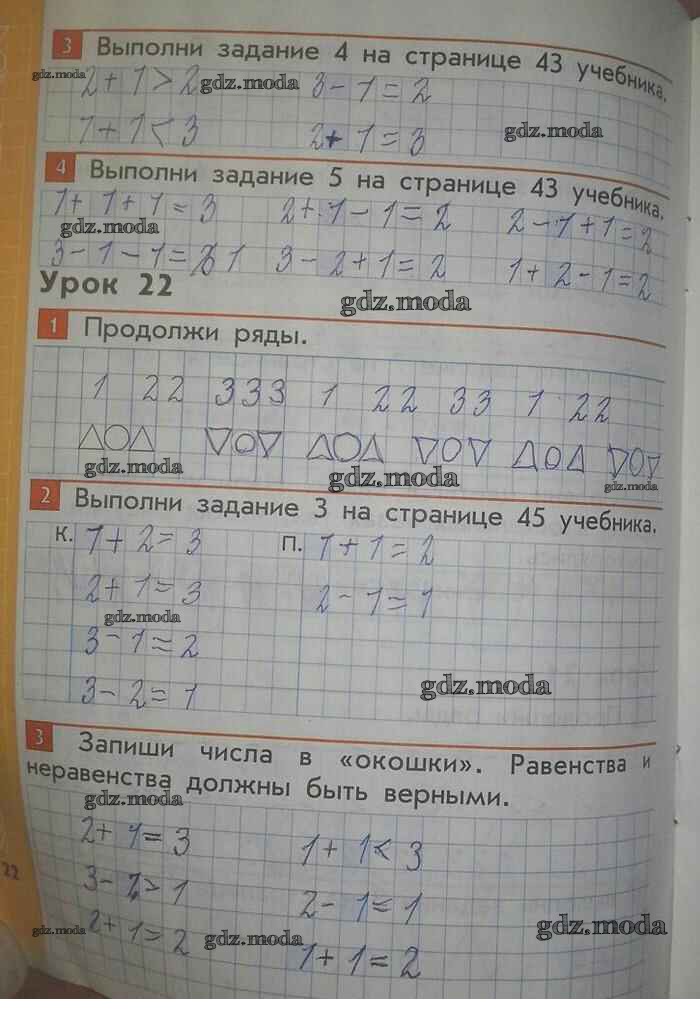 3 Выполни задание 4 на странице 43 учебника.
gdz.moda 2 + 1 > 2 gdz.moda 3 - 1 = 2
1 + 1 < 3 2 + 1 = 3 gdz.moda
4 Выполни задание 5 на странице 43 учебника.
1 + 1 + 1 = 3 2 + 1 - 1 = 2 2 - 1 + 1 = 2
gdz.moda
3 - 1 - 1 = 1 3 - 2 + 1 = 2 1 + 2 - 1 = 2
Урок 22
gdz.moda
1 Продолжи ряды.
1 22 333 1 22 33 1 22
gdz.moda gdz.moda gdz.moda
2 Выполни задание 3 на странице 45 учебника.
К. 1 + 2 = 3 П. 1 + 1 = 2
2 + 1 = 3 2 - 1 = 1
gdz.moda
3 - 1 = 2
3 - 2 = 1 gdz.moda
3 Запиши числа в «окошки». Равенства и
неравенства должны быть верными.
gdz.moda
2 + 1 = 3 1 + 1 < 3
22
3 - 1 > 1 2 - 1 = 1
gdz.moda 2 + 1 = 2 gdz.moda 1 + 1 = 2 gdz.moda